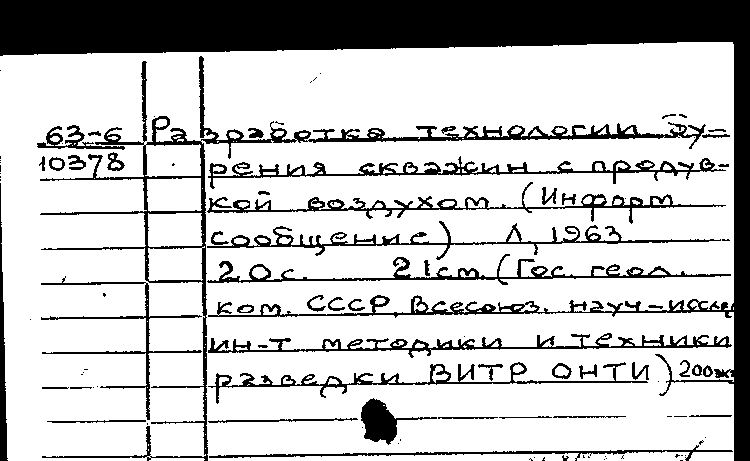 63-6 Разработка технологии бу-
10378 рения скважин с продув-
кой воздухом. (Информ.
сообщение) Л, 1963
20 с. 21 см. (Гос. геол.
ком. СССР. Всесоюз. науч-исслед
ин-т методики и техники
разведки ВИТР ОНТИ) 200 эк